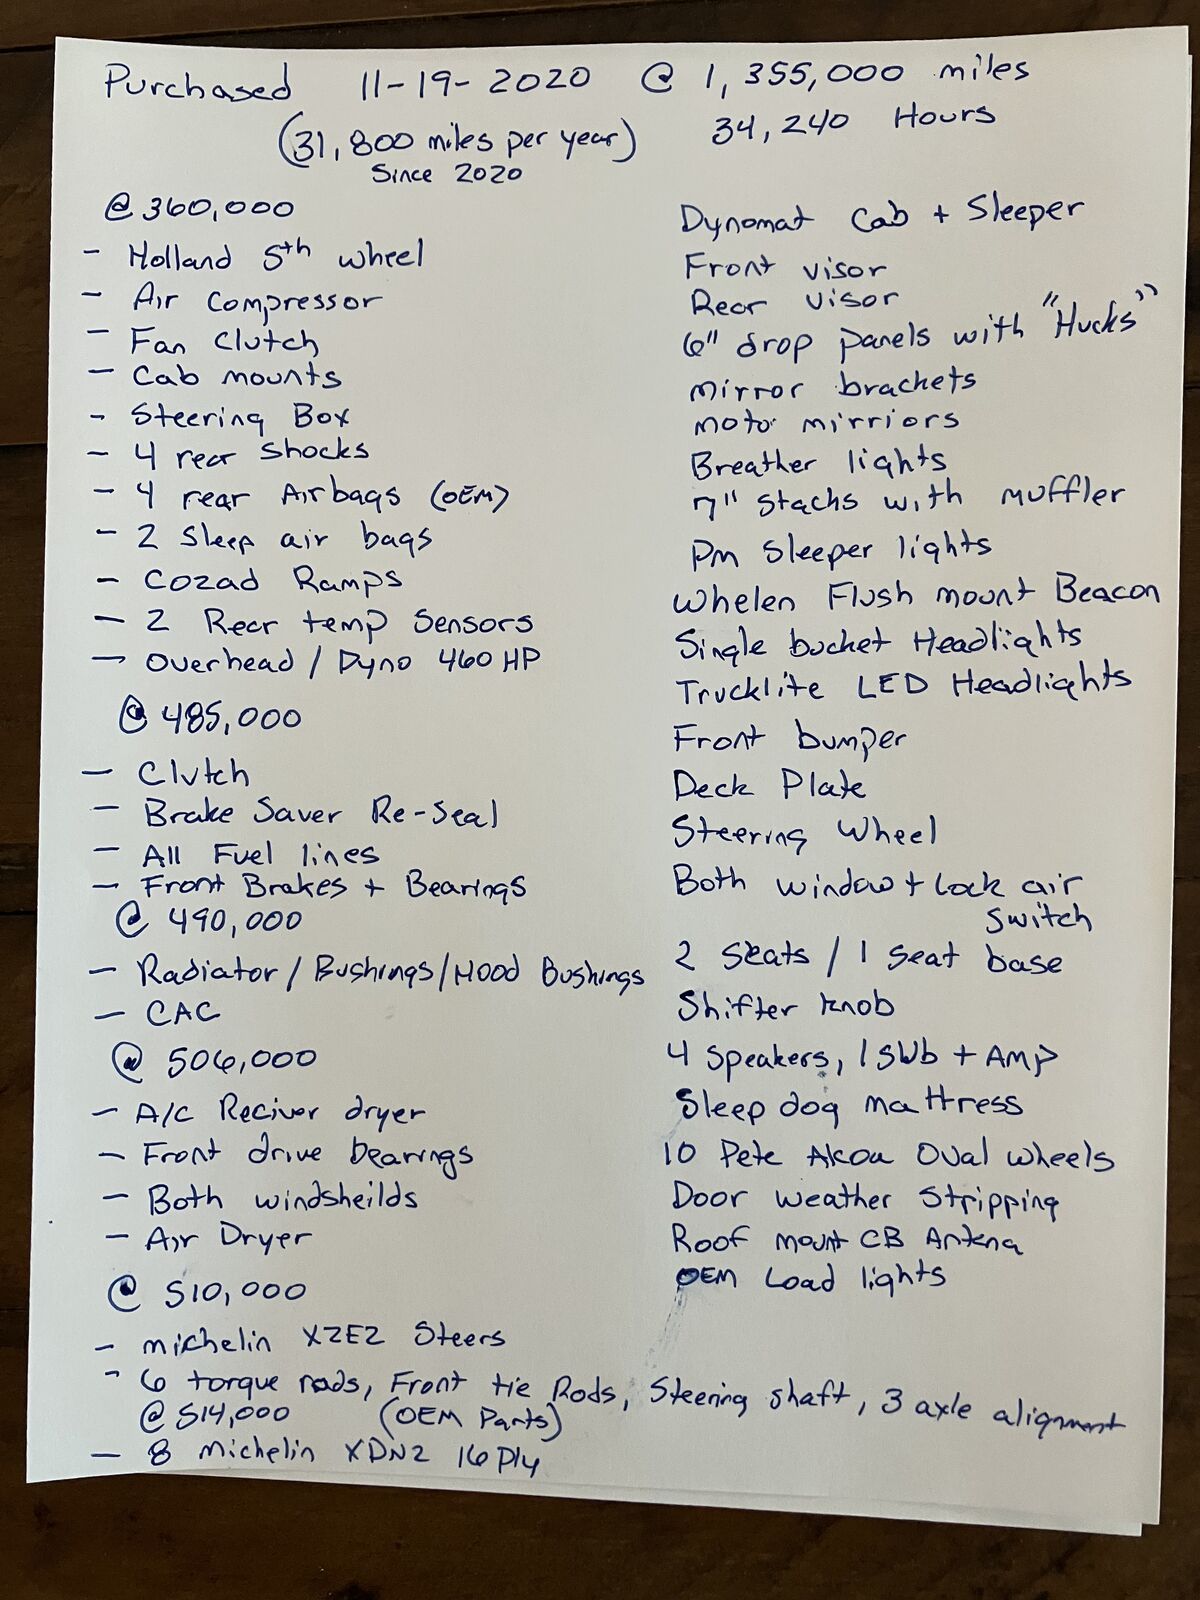 Purchased 11-19-2020 @ 1,355,000 miles
(31,800 miles per year) 34,240 Hours
Since 2020
@ 360,000
- Holland 5th wheel
- Air Compressor
- Fan Clutch
- Cab mounts
- Steering Box
- 4 rear Shocks
- 4 rear Airbags (OEM)
- 2 Sleep air bags
- Cozad Ramps
- 2 Rear temp Sensors
- Overhead / Dyno 460 HP
@ 485,000
- Clutch
- Brake Saver Re-Seal
- All Fuel lines
- Front Brakes + Bearings
@ 490,000
- Radiator / Bushings / Hood Bushings
- CAC
@ 506,000
- A/C Reciver dryer
- Front drive bearings
- Both windsheilds
- Air Dryer
@ 510,000
- Michelin XZE2 Steers
- 6 torque rods, Front tie Rods, Steering shaft, 3 axle alignment
@ 514,000 (OEM Parts)
- 8 Michelin XDN2 16 Ply
Dynomat Cab + Sleeper
Front visor
Rear visor
6" drop panels with "Hucks"
Mirror brackets
Moto mirriors
Breather lights
7" Stacks with muffler
Pm Sleeper lights
Whelen Flush mount Beacon
Single bucket Headlights
Trucklite LED Headlights
Front bumper
Deck Plate
Steering Wheel
Both window + Lock air
Switch
2 Seats / 1 Seat base
Shifter knob
4 Speakers, 1 Sub + Amp
Sleep dog mattress
10 Pete Alcoa Oval wheels
Door weather Stripping
Roof mount CB Antena
OEM Load lights